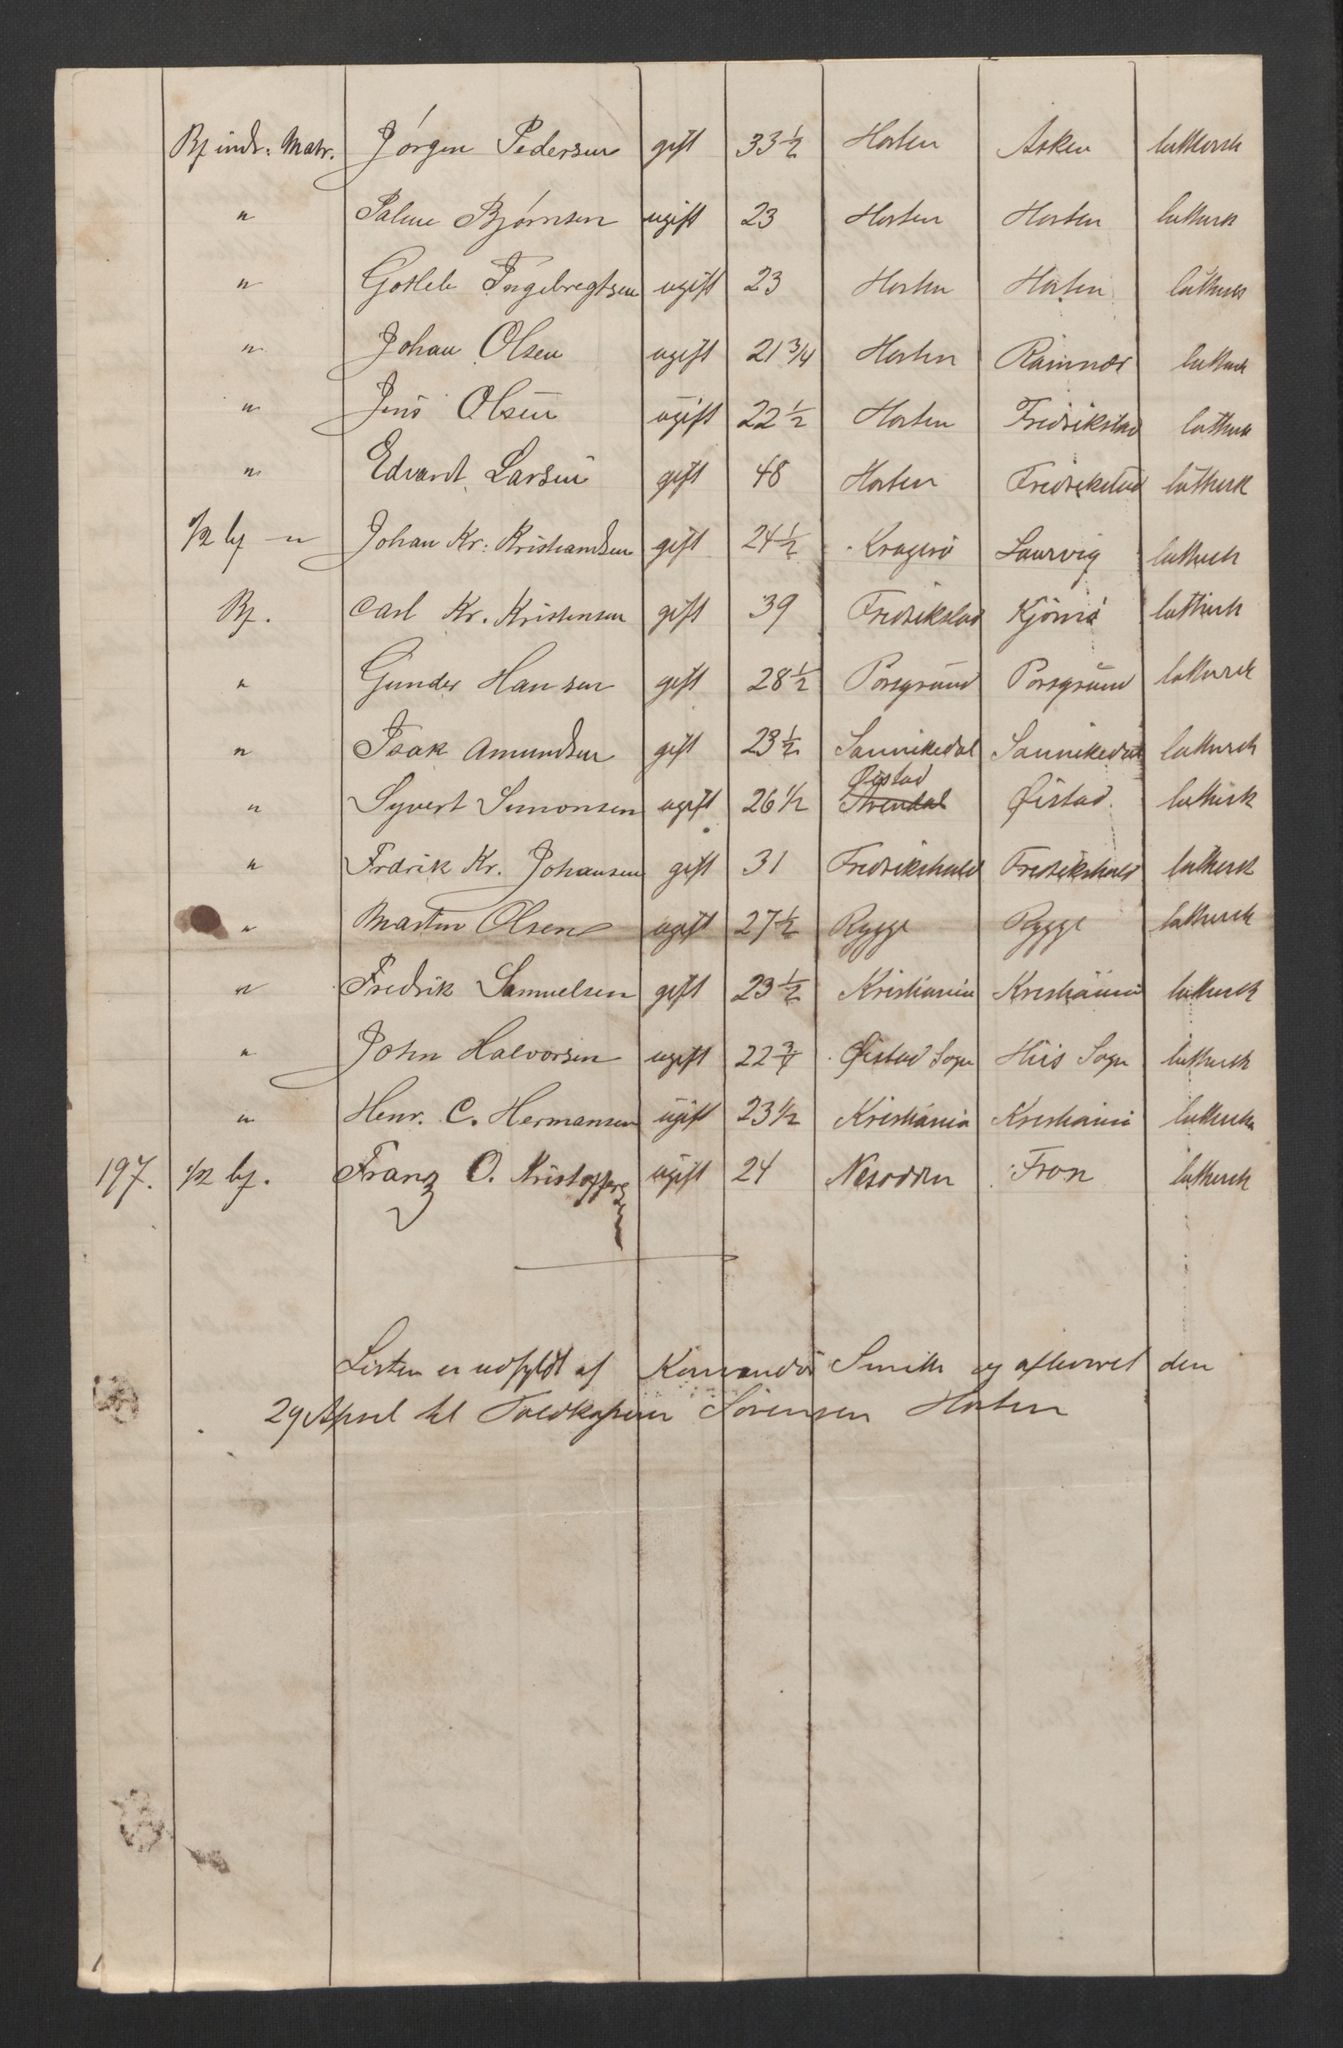 Bf indr. Matr. Jörgen Pedersen gift 33 1/2 Horten Asken luthersk
" Palme Bjørnsen ugift 23 Horten Horten luthersk
" Gotleb Ingebregtsen ugift 23 Horten Horten luthersk
" Johan Olsen ugift 21 3/4 Horten Ramnæs luthersk
" Jens Olsen ugift 22 1/2 Horten Fredrikstad luthersk
" Edvard Larsen gift 48 Horten Fredrikstad luthersk
1/2 bf - " Johan Kr: Kristiandsen gift 24 1/2 Kragerö Laurvig luthersk
Bf. Carl Kr. Kristensen gift 39 Fredrikstad Kjömö luthersk
" Gunder Hansen gift 28 1/2 Porsgrund Porsgrund luthersk
" Isak Amundsen gift 23 1/2 Sannikedal Sannikedal luthersk
Øistad
" Syvert Simonsen ugift 26 1/2 Arendal Øistad. luthersk
" Frdrik Kr. Johansen gift 31 Fredrikshald Fredrikshald luthersk
" Martin Olsen ugift 27 1/2 Rygge Rygge luthersk
" Fredrik Samuelsen gift 23 1/2 Kristiania Kristiania luthersk
" John Halvorsen ugift 22 3/4 Øistad Sogn Hiis Sogn luthersk
" Henr. C. Hermansen ugift 23 1/2 Kristiania Kristiania luthersk
197. 1/2 bf. Franz O. Kristoffersen ugift 24 Nesodden Fron luthersk
Listen er udfyldt af Komandör Smith og afleveret den
29 April til Toldkasserer Sörensen Horten